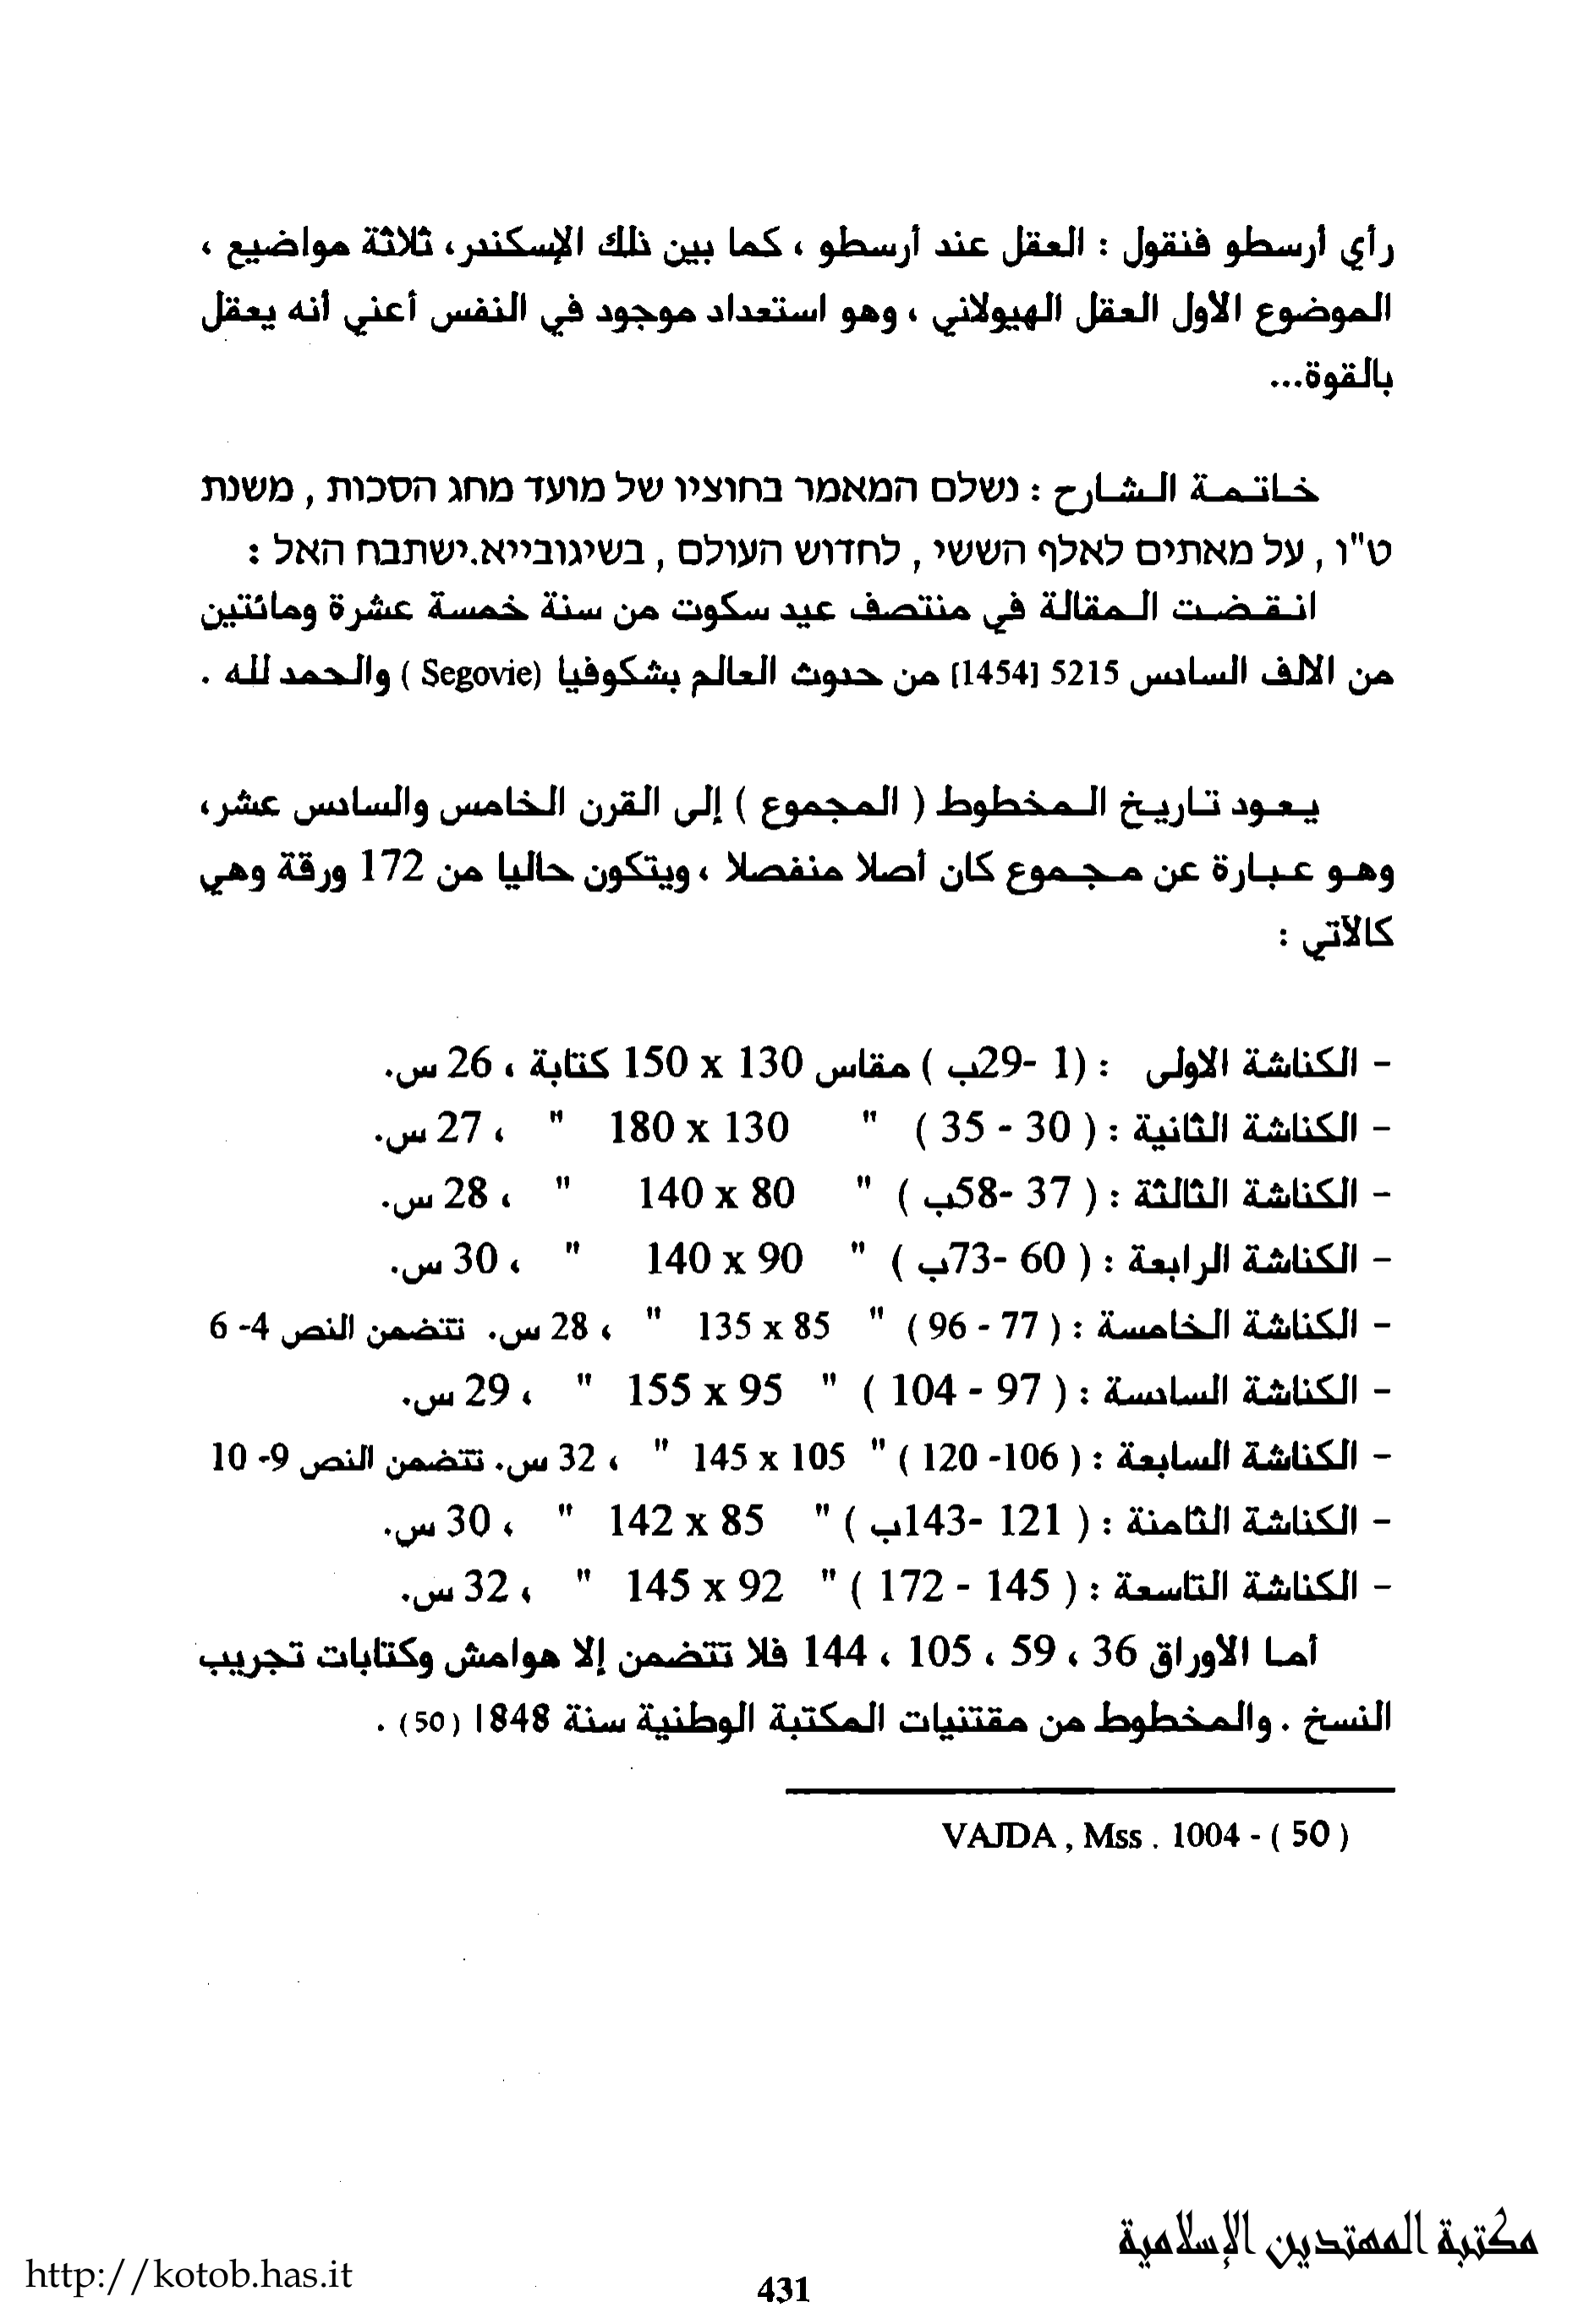 رأي أرسطو فنقول : العقل عند أرسطو ، كما بين ذلك الإسكندر، ثلاثة مواضيع ،
الموضوع الاول العقل الهيولاني ، وهو استعداد موجود في النفس أعني أنه يعقل
بالقوة...
خاتمة الشارح : נשלם המאמר בחוציו של מועד מחג הסכות , משנת
ט"ו , על מאתים לאלף הששי , לחדוש העולם , בשיגובייא.ישתבח האל :
انقضت المقالة في منتصف عيد سكوت من سنة خمسة عشرة ومائتين
من الالف السادس 5215 [1454] من حدوث العالم بشكوفيا (Segovie ) والحمد لله .
يعود تاريخ المخطوط ( المجموع ) إلى القرن الخامس والسادس عشر،
وهو عبارة عن مجموع كان أصلا منفصلا ، ويتكون حاليا من 172 ورقة وهي
كالآتي :
- الكناشة الاولى : (1 -29ب ) مقاس 130 x 150 كتابة ، 26 س.
- الكناشة الثانية : ( 30 - 35 ) " 130 x 180 " ، 27 س.
- الكناشة الثالثة : ( 37 -58ب ) " 80 x 140 " ، 28 س.
- الكناشة الرابعة : ( 60 -73ب ) " 90 x 140 " ، 30 س.
- الكناشة الخامسة : ( 77 - 96 ) " 85 x 135 " ، 28 س. تتضمن النص 4- 6
- الكناشة السادسة : ( 97 - 104 ) " 95 x 155 " ، 29 س.
- الكناشة السابعة : ( 106- 120 ) " 105 x 145 " ، 32 س. تتضمن النص 9- 10
- الكناشة الثامنة : ( 121 -143ب ) " 85 x 142 " ، 30 س.
- الكناشة التاسعة : ( 145 - 172 ) " 92 x 145 " ، 32 س.
أما الاوراق 36 ، 59 ، 105 ، 144 فلا تتضمن إلا هوامش وكتابات تجريب
النسخ . والمخطوط من مقتنيات المكتبة الوطنية سنة 1848 (50) .
VAJDA , Mss . 1004 - ( 50 )
مكتبة المهتدين الإسلامية
http://kotob.has.it
431